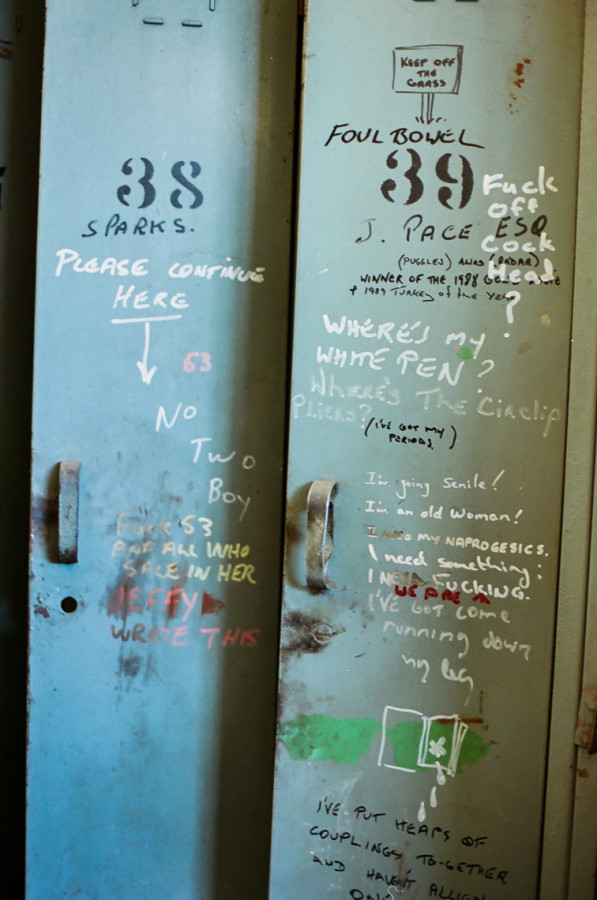 38
SPARKS.
PLEASE CONTINUE
HERE
53
NO
TWO
BOY
FUCK 53
AND ALL WHO
SALE IN HER
JEFFY
WROTE THIS
KEEP OFF
THE
GRASS
FOUL BOWEL
39
J. PACE ESQ
(PUGGLES) ALIAS (RADAR)
WINNER OF THE 1988
& 1989 TURKEY of the YEAR
Fuck
off
Cock
Head
?
WHERE'S MY
WHITE PEN?
WHERE'S THE CIRCLIP
PLIERS?
(I'VE GOT MY
PERIODS)
I'm going Senile!
I'm an old Woman!
I NEED MY NAPROGESICS.
I need something:
I NEED FUCKING.
I'VE GOT COME
running down
my leg
I'VE PUT HEAPS OF
COUPLINGS TOGETHER
AND HAVEN'T